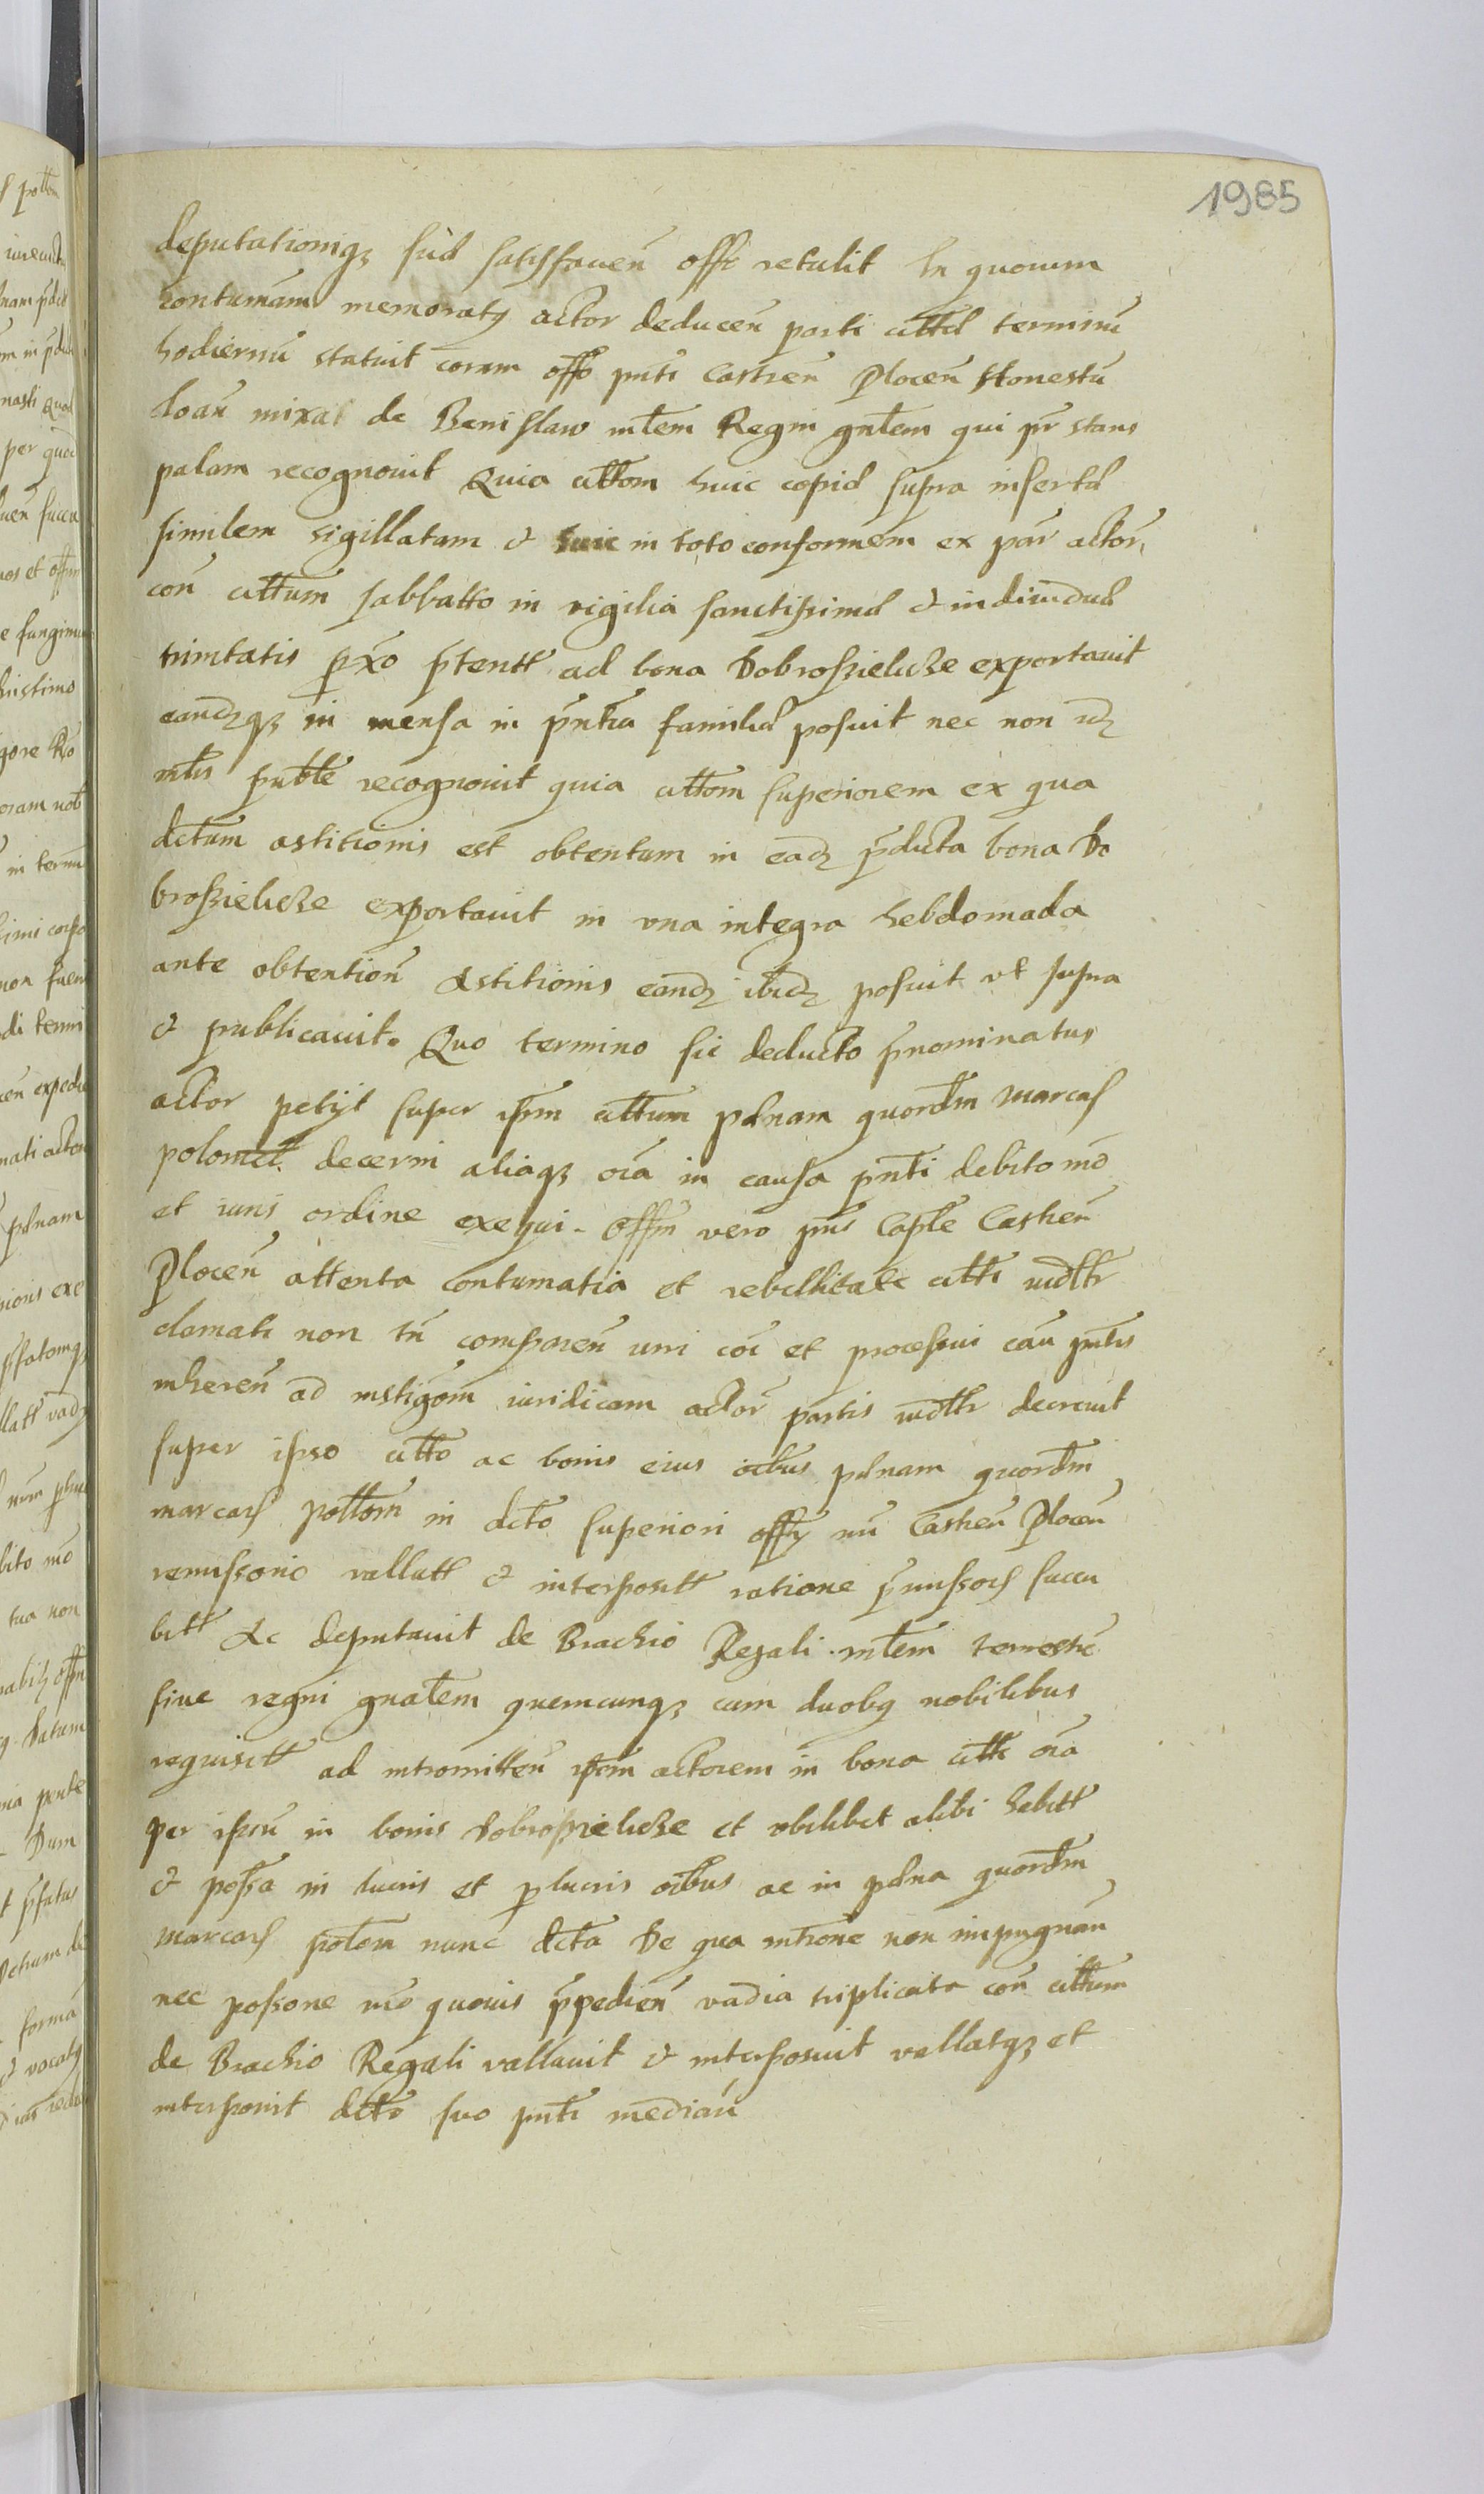 1985
deputationiq₃ suæ satisfaceñ offi retulit In quorum
contumam memoratꝯ actor deduceñ parti cittæ terminũ
hodiernũ statuit coram offo pñti Castreñ Ploceñ Honestũ
Ioañ mixal de Benislaw mlem Regni gnłem qui pr stans
palam recognouit Quia cittom huic copiæ supra insertæ
similem sigillatam & huic in toto conformem ex par actor
con cittum sabbatto in vigilia sanctissimæ & indiuiduæ
trinitatis pxo ptentt ad bona Dobrosielicze exportauit
eandq₃ in mensa in pñtia familiæ posuit nec non id₃
mlis puble recognouit quia cittom superiorem ex qua
dctum astitionis est obtentum in ead₃ pdicta bona Do
brosielicze exportauit in vna integra hebdomada
ante obtentioñ Astitionis eand₃ ibid₃ posuit vt supra
& publicauit. Quo termino sic deducto pnominatus
actor petijt super ipm cittum pænam quordm marcas
polonicl. decerni aliaq₃ oia in causa pñti debito mõ
et iuris ordine exequi. Offm vero pñs Caple Castreñ
Ploceñ attenta contumatia et rebellitate citti mdltr
clamati non tñ compareñ iuri coi et processui cau pñtis
inhereñ ad instigom iuridicam actor partis mdltr decreuit
super ipso citto ac bonis eius oibus pænam quordm
marcas pollom in dcto superiori offy mi Castreñ Ploceñ
remissorio vallatt & interpositt ratione pmissors succu
bitt Ac deputauit de Brachio Regali mlem terrestre
siue regni gnałem quemcunq₃ cum duobꝯ nobilibus
requisitt ad intromitteñ ipm actorem in bona citti oia
per ipsũ in bonis Dobrosielicze et vbilibet alibi habitt
& possa in lucris et plucris oibus ac in pæna quordm
marcas polom nunc dcta De qua introne non impugnañ
nec possone mõ quouis ppedieñ vadia triplicata con cittum
de Brachio Regali vallauit & interposuit vallatq₃ et
interponit dcto suo pñti mediañ